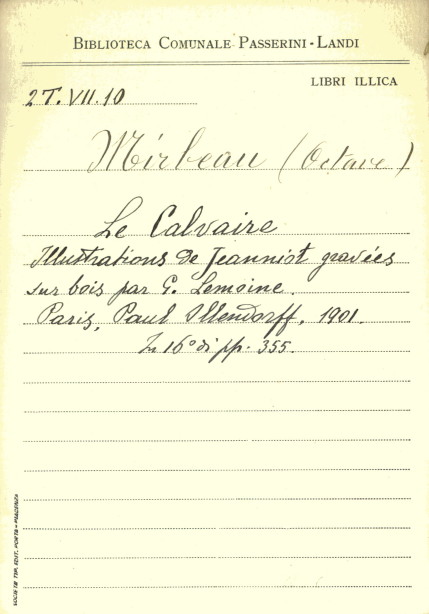 BIBLIOTECA COMUNALE PASSERINI-LANDI
LIBRI ILLICA
2T.VII.10
Mirbeau (Octave)
Le Calvaire
Illustrations de Jeanniot gravées
sur bois par G. Lemoine.
Paris, Paul Ollendorff, 1901.
In 16° di pp. 355.